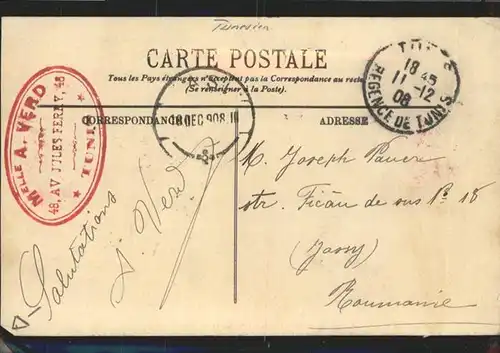 CARTE POSTALE
Tous les Pays étrangers n'acceptent pas la Correspondance au recto
(Se renseigner à la Poste).
CORRESPONDANCE
ADRESSE
MELLE A. VERD
48, AV JULES FERRY, 48
TUNIS
18 DEC 908
18 45
11 -12
08
REGENCE DE TUNIS
Salutations
A. Verd
M. Joseph
str.
de sus No 18
(Jassy)
Roumanie